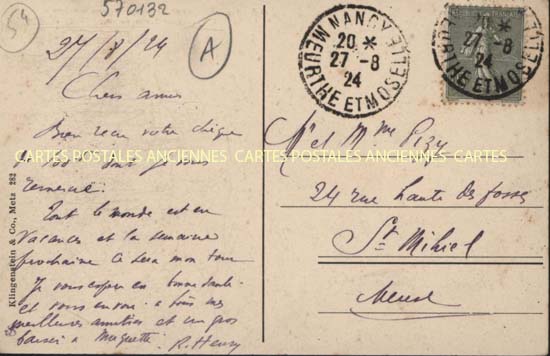 54
570132
A
27/8/24
Chers amis
Bien reçu votre chèque
de 100 dont je vous
remercie.
Tout le monde est en
vacances et la semaine
prochaine ce sera mon tour
Je vous espère en bonne santé
et vous envoie à tous mes
meilleures amitiés et un gros
baiser à Muguette. R. Henry
Klingenstein & Co., Metz 282
CARTES POSTALES ANCIENNES CARTES POSTALES ANCIENNES CARTES
NANCY
20 *
27 -8
24
MEURTHE ET MOSELLE
20 *
27 -8
24
MEURTHE ET MOSELLE
Mr et Mme
24 rue haute des fosses
St Mihiel
Meuse